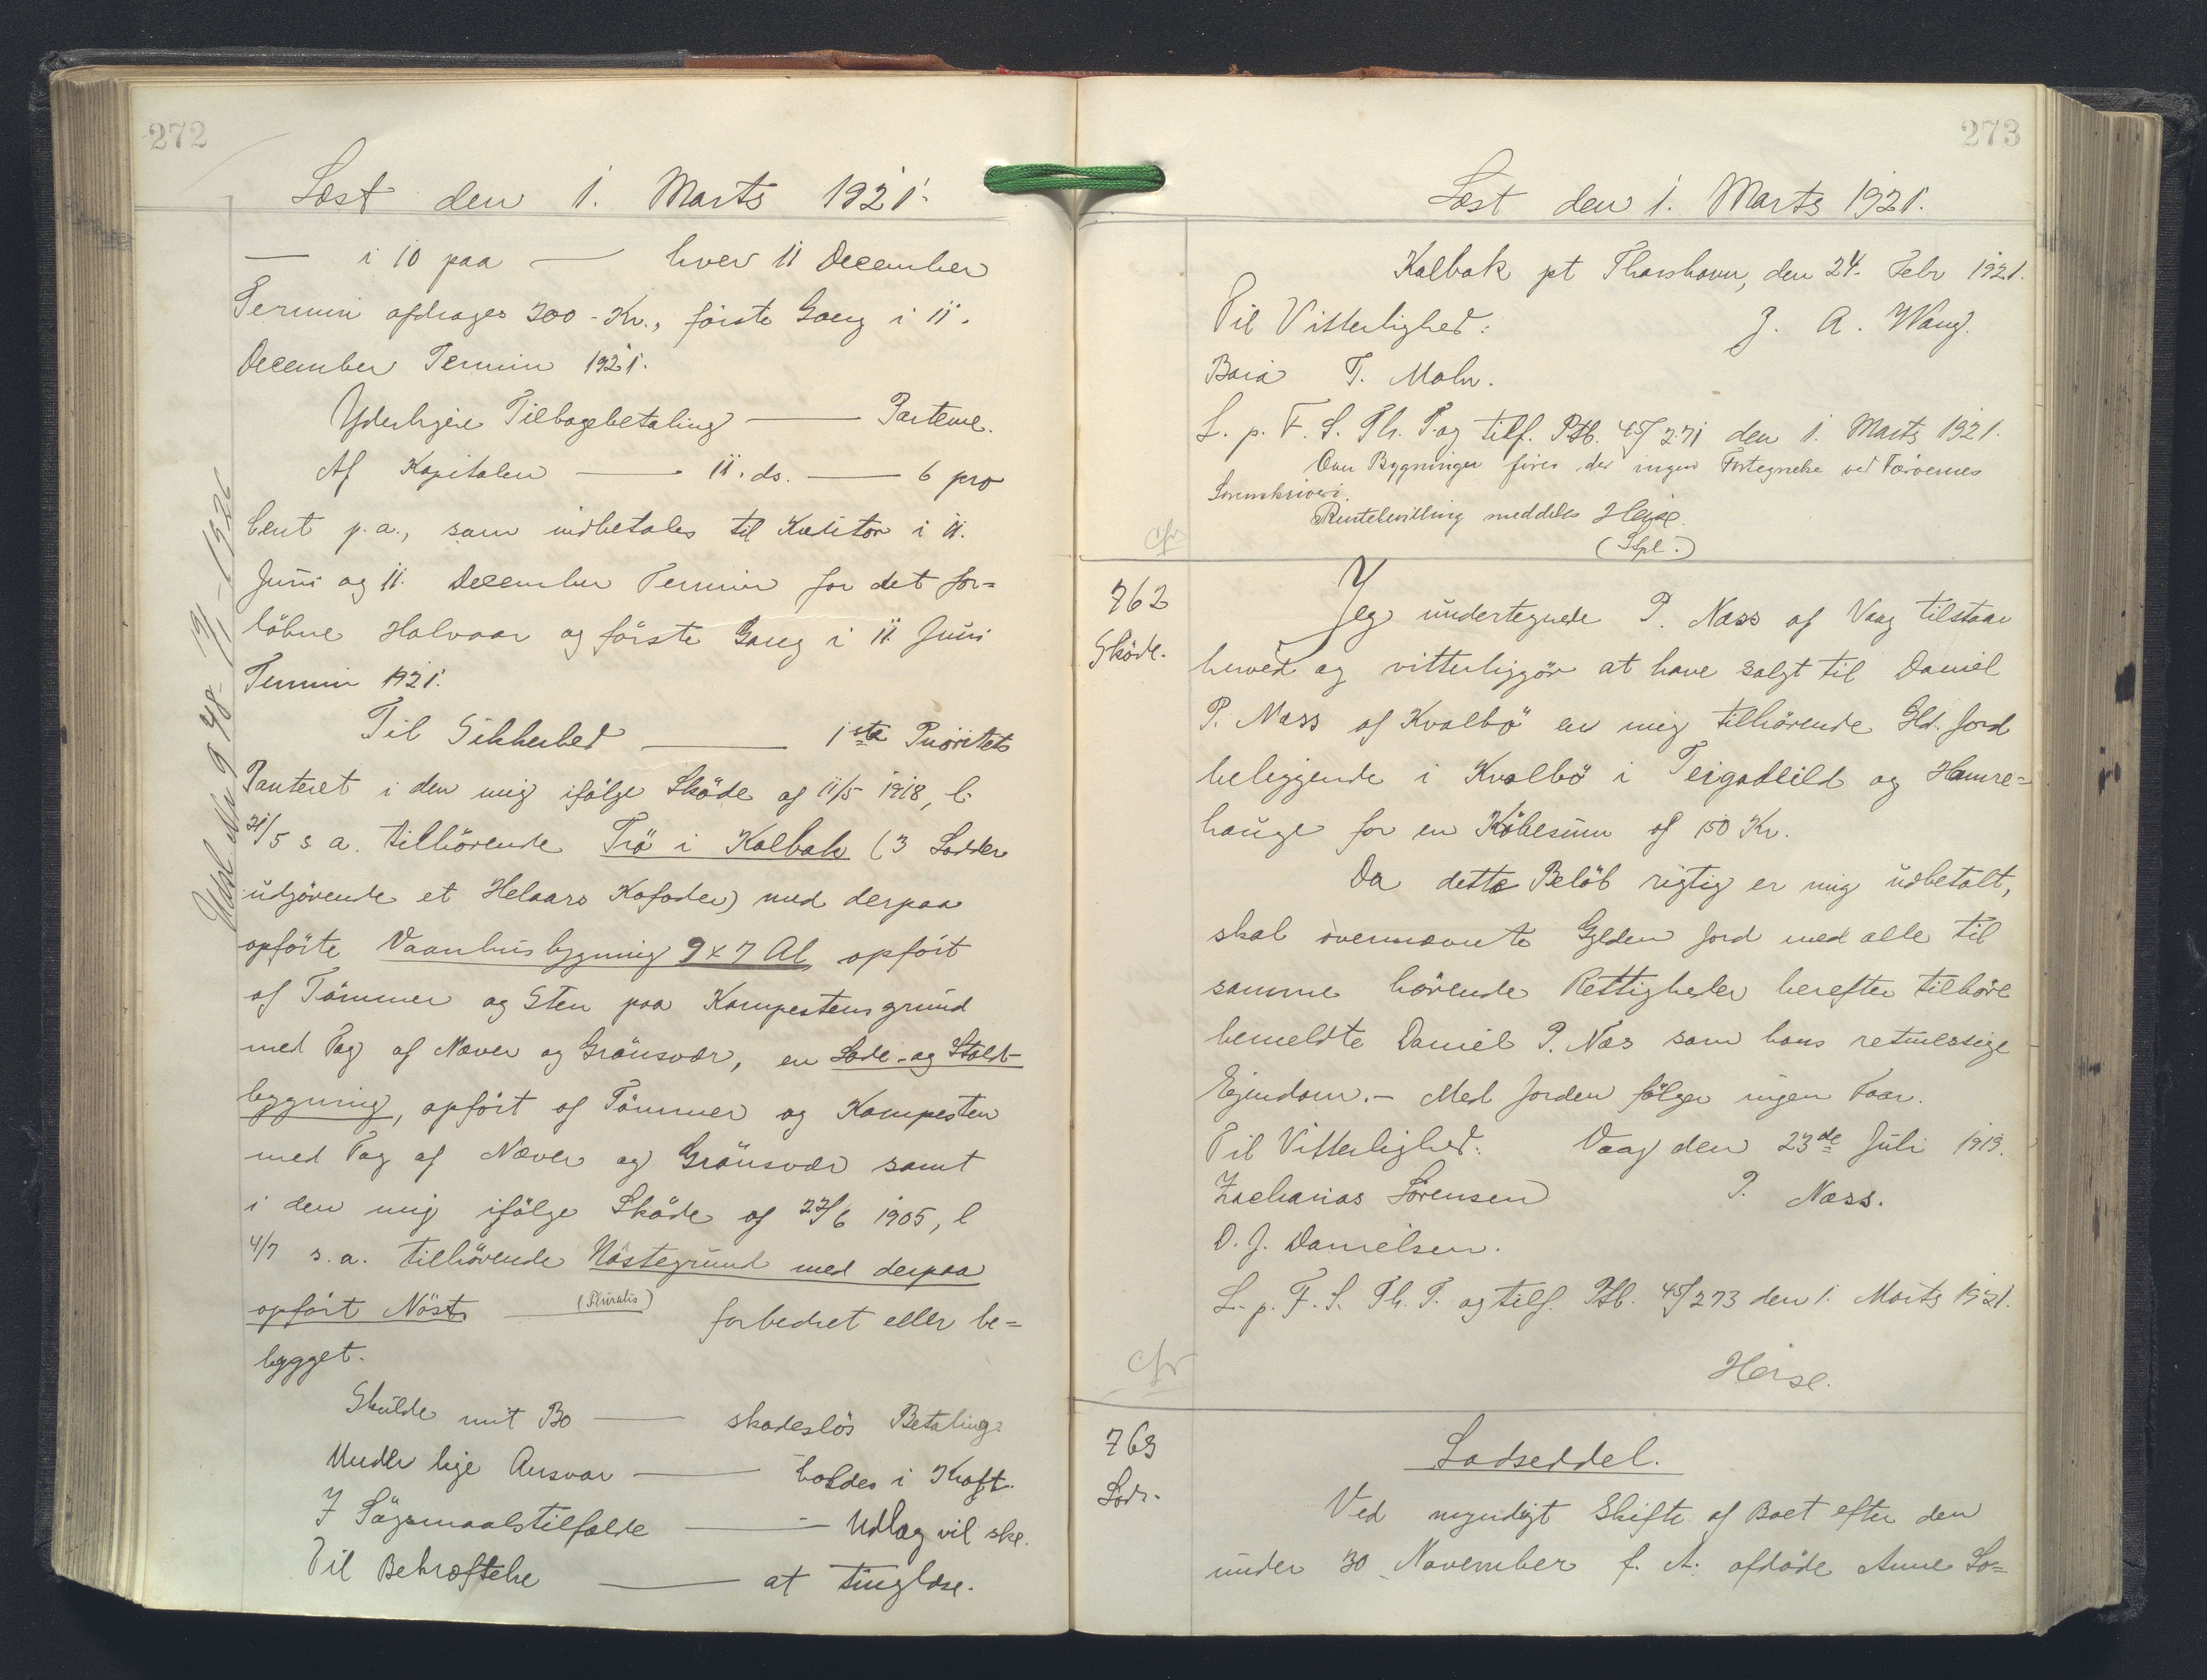 272
Læst den 1. Marts 1921.
— i 10 paa — hver 11 December
Termin afdrages 200 - Kr., förste Gang i 11.
December Termin 1921.
Yderligere Tilbagebetaling — Parterne.
Af Kapitalen — 11. ds. — 6 pro
Cent p. a., som indbetales til Kreditor i 11.
Juni og 11. December Termin for det for=
löbne Halvaar og förste Gang i 11 Juni
Termin 1921.
Til Sikkerhed — 1ste Prioritets
Panteret i den mig ifölge Sköde af 11/5 1918, l.
31/5 s. a. tilhörende Trö i Kalbak (3 Lodder
udgörende et Helaars Kofoder) med derpaa
opförte Vaanhusbygning 9 x 7 Al. opfört
af Tömmer og Sten paa Kampestensgrund
med Tag af Næver og Grönsvær, en Lade- og Stald-
bygning, opfört af Tömmer og Kampesten
med Tag af Næver og Grönsvær samt
i den mig ifölge Sköde af 22/6 1905, l
4/7 s. a. tilhörende Nöstegrund med derpaa
opfört Nöst — (Pluralis) forbedret eller be=
bygget.
Skulde mit Bo — skadeslös Betaling.
Under lige Ansvar — holdes i Kraft.
I Sögsmaalstilfælde — Udlæg vil ske.
Til Bekræftelse — at tinglæse.
273
Læst den 1. Marts 1921.
Kalbak pt Thorshavn, den 24. Febr 1921.
Til Vitterlighed: J. A. Wang.
Baia T. Mohr.
L. p. F. S. Th. T. og tilf. Ptb. 45/271 den 1. Marts 1921.
Over Bygninger föres der ingen Fortegnelse ved Færöernes
Sorenskriveri.
Rentebevilling meddeles Heise.
(Stpl.)
cfr
762
Sköde.
Jeg undertegnede P. Næss af Vaag tilstaar
herved og vitterliggör at have solgt til Daniel
P. Næss af Kvalbö en mig tilhörende Gld. Jord
beliggende i Kvalbö i Teigadeild og Hamre=
hauge for en Köbesum af 150 Kr.
Da dette Belöb rigtig er mig udbetalt,
skal ovennævnte Gylden Jord med alle til
samme hörende Rettigheder herefter tilhöre
bemeldte Daniel P. Næs som hans retmessige
Ejendom. - Med Jorden fölger ingen Faar.
Til Vitterlighed: Vaag den 23de Juli 1919.
Zacharias Sörensen P. Næss.
D. J. Danielsen.
L. p. F. S. Th. T. og tilf. Ptb. 45/273 den 1. Marts 1921.
Heise.
cfr
763
Lods.
Lodseddel.
Ved myndigt Skifte af Boet efter den
under 30 November f. A. afdöde Anne So=